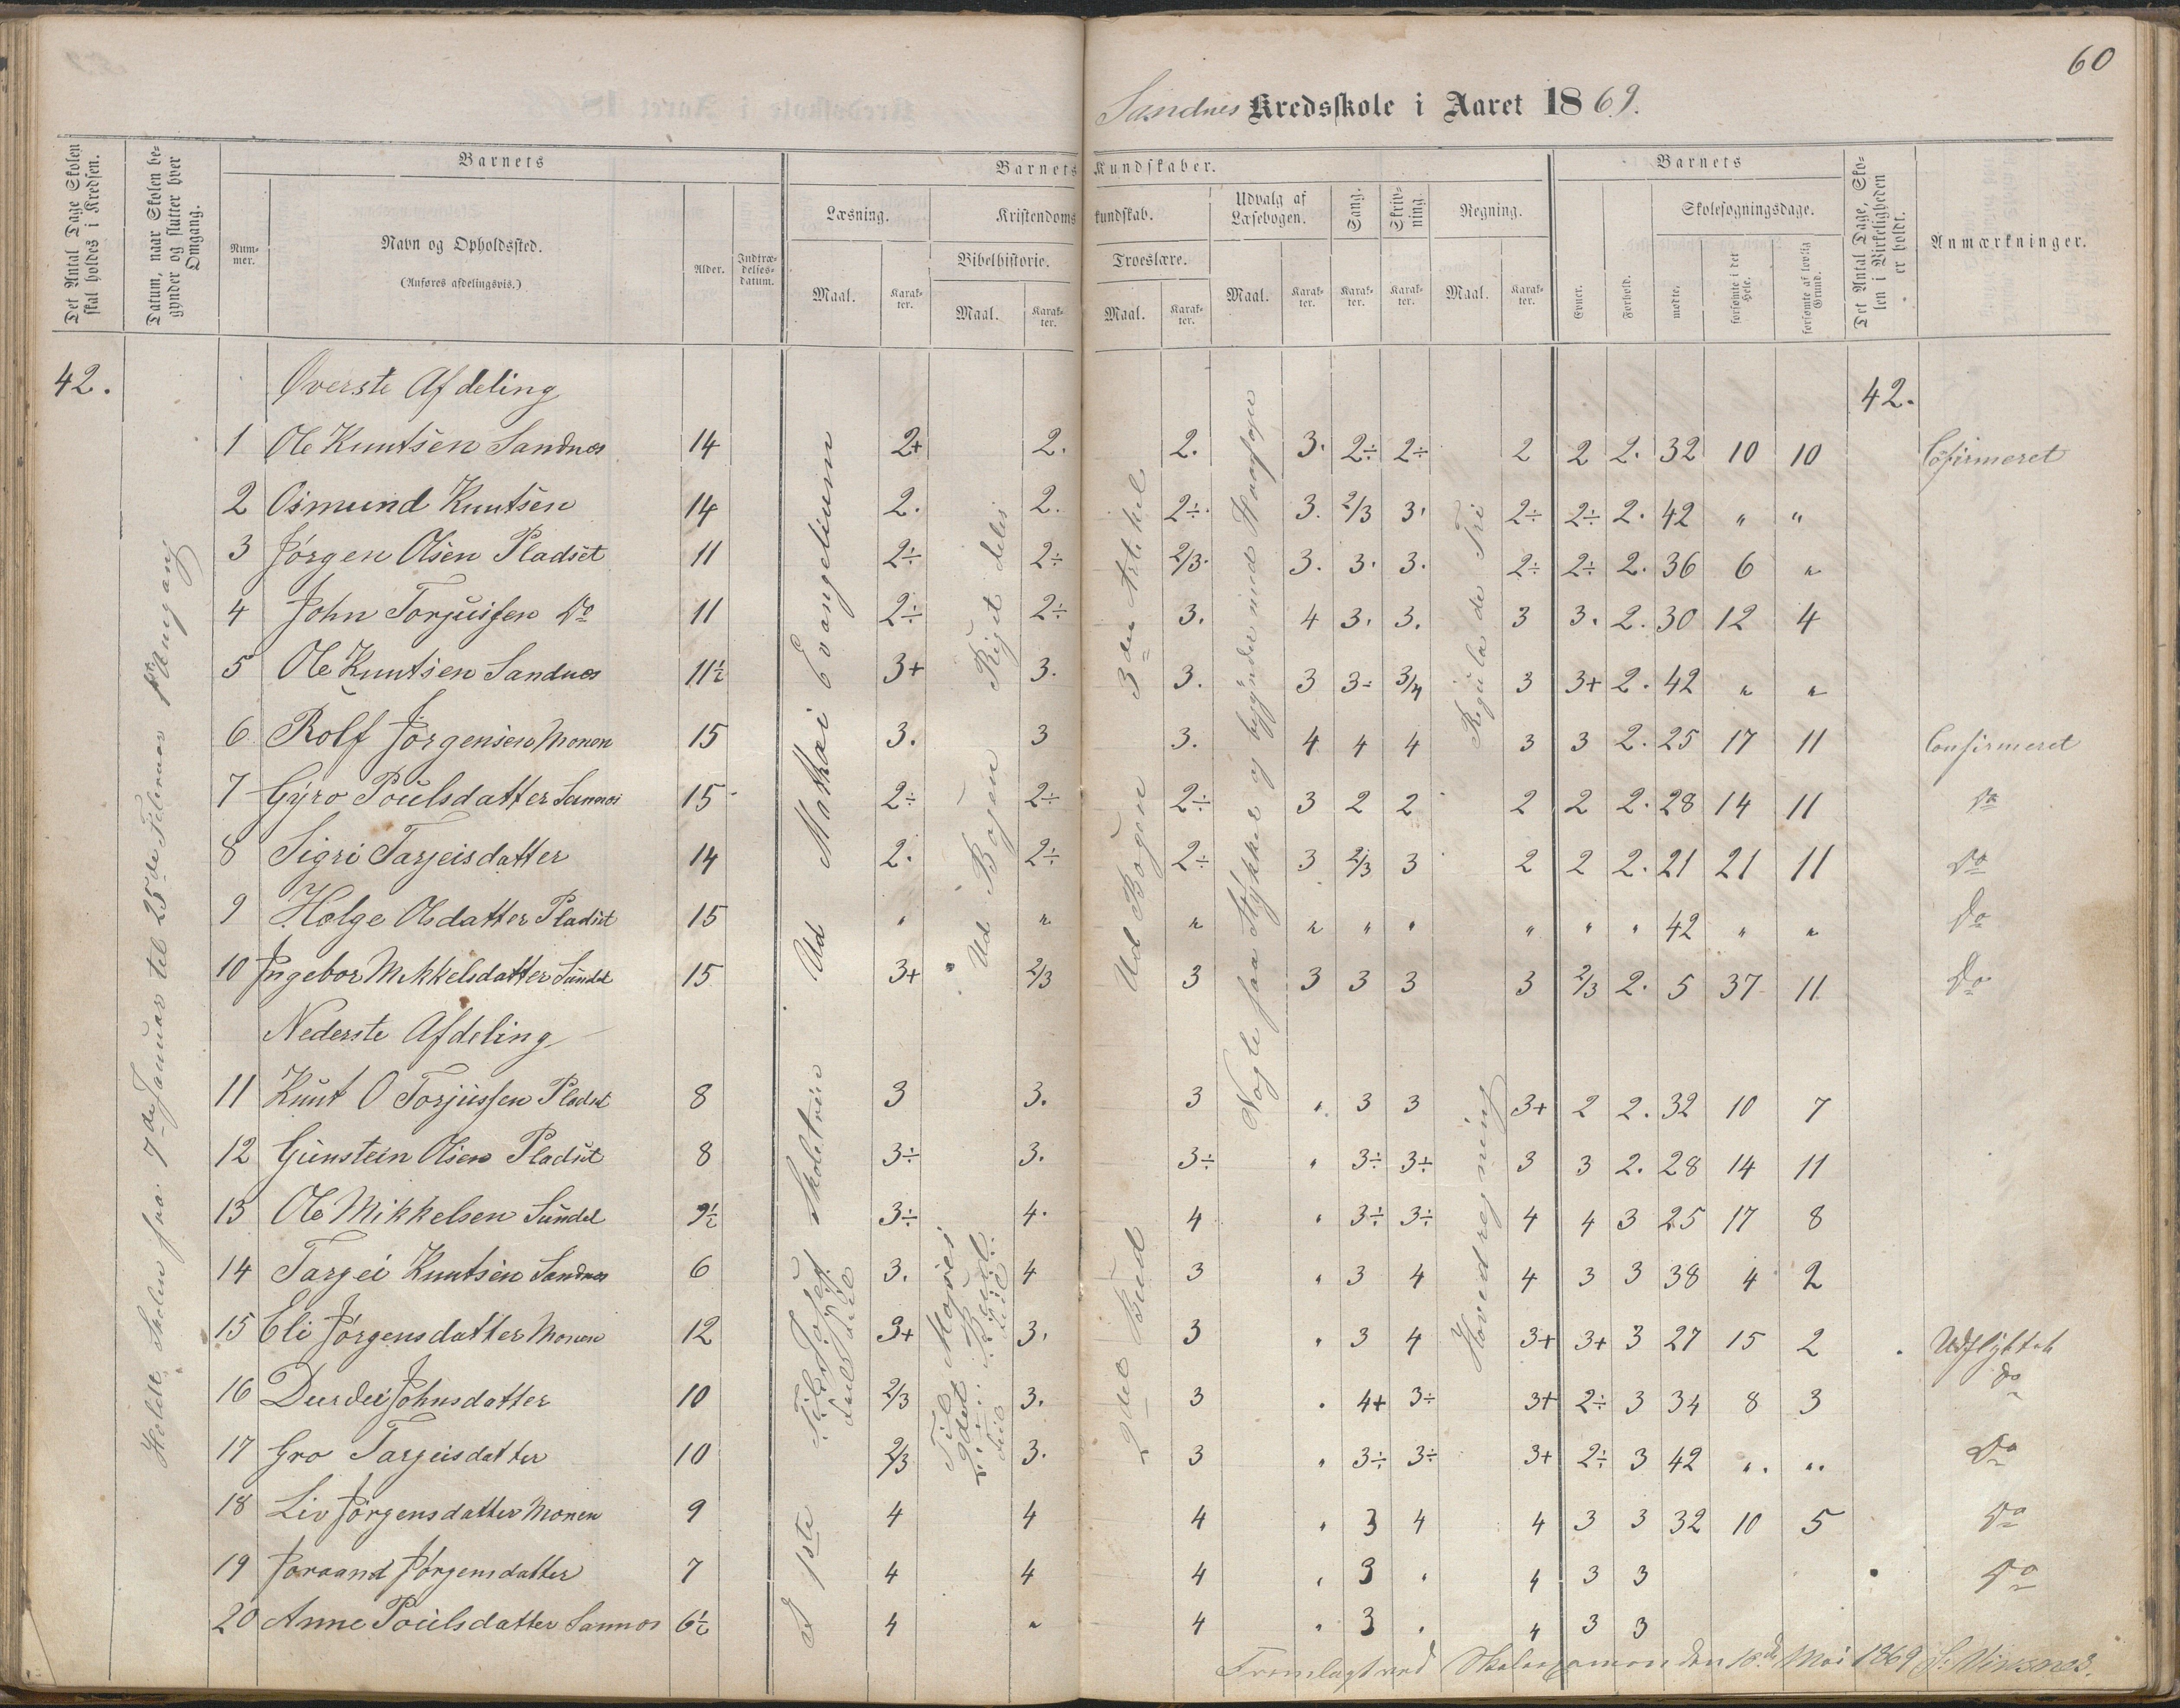 60
Sandnes Kredsskole i Aaret 1869.
Det Antal Dage Skolen skal holdes i Kredsen.
Datum, naar Skolen begynder og slutter hver Omgang.
Barnets
Nummer.
Navn og Opholdssted.
(Anføres afdelingsvis.)
Alder.
Indtrædelsesdatum.
Barnets Kundskaber.
Læsning.
Maal.
Karakter.
Kristendomskundskab.
Bibelhistorie.
Maal.
Karakter.
Troeslære.
Maal.
Karakter.
Udvalg af Læsebogen.
Maal.
Karakter.
Sang.
Karakter.
Skrivning.
Karakter.
Regning.
Maal.
Karakter.
Barnets
Evner.
Forhold.
Skolesøgningsdage.
mødte.
forsømte i det Hele.
forsømte af lovlig Grund.
Det Antal Dage, Skolen i Virkeligheden er holdt.
Anmærkninger.
42. Øverste Afdeling 42.
1 Ole Knutsen Sandnes 14 2+ 2. 2. 3. 2÷ 2÷ 2 2 2. 32 10 10 Cofirmeret
2 Osmund Knutsen 14 2. 2. 2÷. 3. 2/3 3. 2÷ 2÷ 2. 42 " "
3 Jørgen Olsen Pladset 11 2÷ 2÷ 2/3. 3. 3. 3. 2÷ 2÷ 2. 36 6 "
4 John Torjussen Do 11 2÷ 2÷ 3. 4 3. 3. 3 3. 2. 30 12 4
5 Ole Knutsen Sandnes 11½ 3+ 3. 3. 3 3÷ 3/4 3 3+ 2. 42 " "
6 Rolf Jørgensen Monen 15 3. 3 3. 4 4 4 3 3 2. 25 17 11 Confirmeret
7 Gyro Poulsdatter Sannes 15 2÷ 2÷ 2÷ 3 2 2 2 2 2. 28 14 11 Do
8 Sigri Tarjeisdatter 14 2. 2÷ 2÷ 3 2/3 3 2 2 2. 21 21 11 Do
9 Hølge Olsdatter Pladset 15 " " " " " " " " " 42 " " Do
10 Ingebor Mikkelsdatter Sundet 15 3+ 2/3 3 3 3 3 3 2/3 2. 5 37 11 Do
Nederste Afdeling
11 Knut O Torjussen Pladset 8 3 3. 3 " 3 3 3+ 2 2. 32 10 7
12 Gunstein Olsen Pladset 8 3÷ 3. 3÷ " 3÷ 3÷ 3 3 2. 28 14 11
13 Ole Mikkelsen Sundet 9½ 3÷ 4. 4 " 3÷ 3÷ 4 4 3 25 17 8
14 Targei Knutsen Sandnes 6 3. 4 3 " 3 4 4 3 3 38 4 2
15 Eli Jørgensdatter Monen 12 3+ 3. 3 " 3 4 3+ 3+ 3 27 15 2 Udflyttet
16 Durdei Johnsdatter 10 2/3 3. 3 " 4+ 3÷ 3+ 2÷ 3 34 8 3 Do
17 Gro Tarjeisdatter 10 2/3 3. 3 " 3÷ 3÷ 3+ 2÷ 3 42 " " Do
18 Liv Jørgensdatter Monen 9 4 4 4 " 3 4 4 3 3 32 10 5 Do
19 Joraand Jørgensdatter 7 4 4 4 " 3 " 4 3 3 Do
20 Anne Poulsdatter Sannes 6½ 4 " 4 " 3 " 4 3 3
Holdt Skolen fra 7de Januar til 25de Februar 1ste Omgang
Ud Mattæi Evangelium
Ud Bogen Riget Deles
Ud Bogen 3die Artikel
Nogle faa Stykker og begynder med
Regula de Tri
1ste Skoletrin
Til Josef
Til Mojses
2det Bud
Hovedregning
Fremlagt ved Skoleexamen den 18de Mai 1869